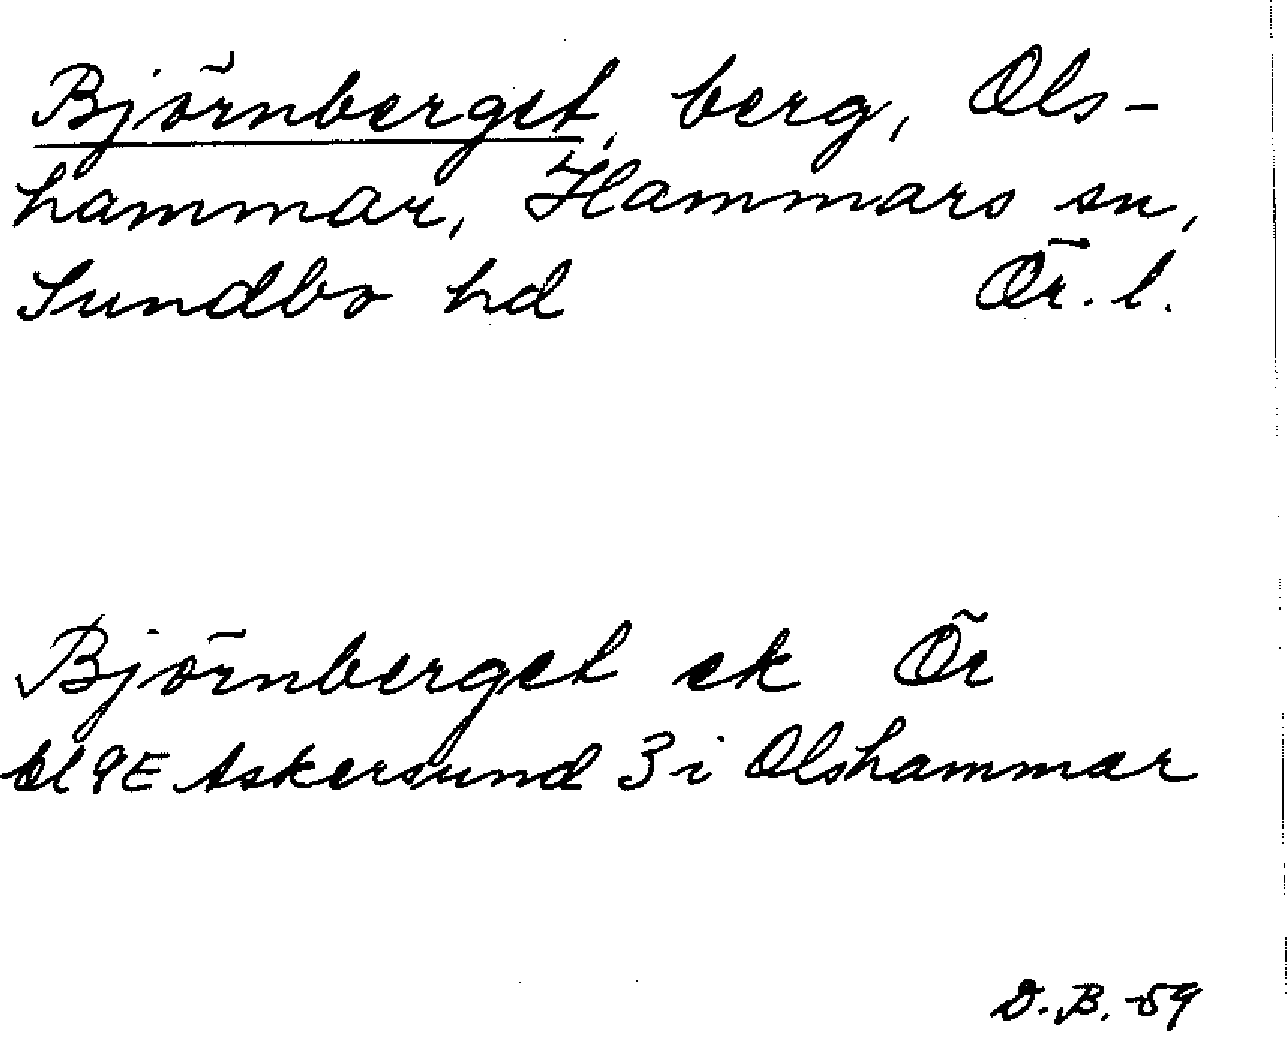 Björnberget, berg, Ols-
hammar, Hammars sn,
Sundbo hd Ör. l.
Björnberget ek Ör
bl 9E Askersund 3 i Olshammar
D. B. -59